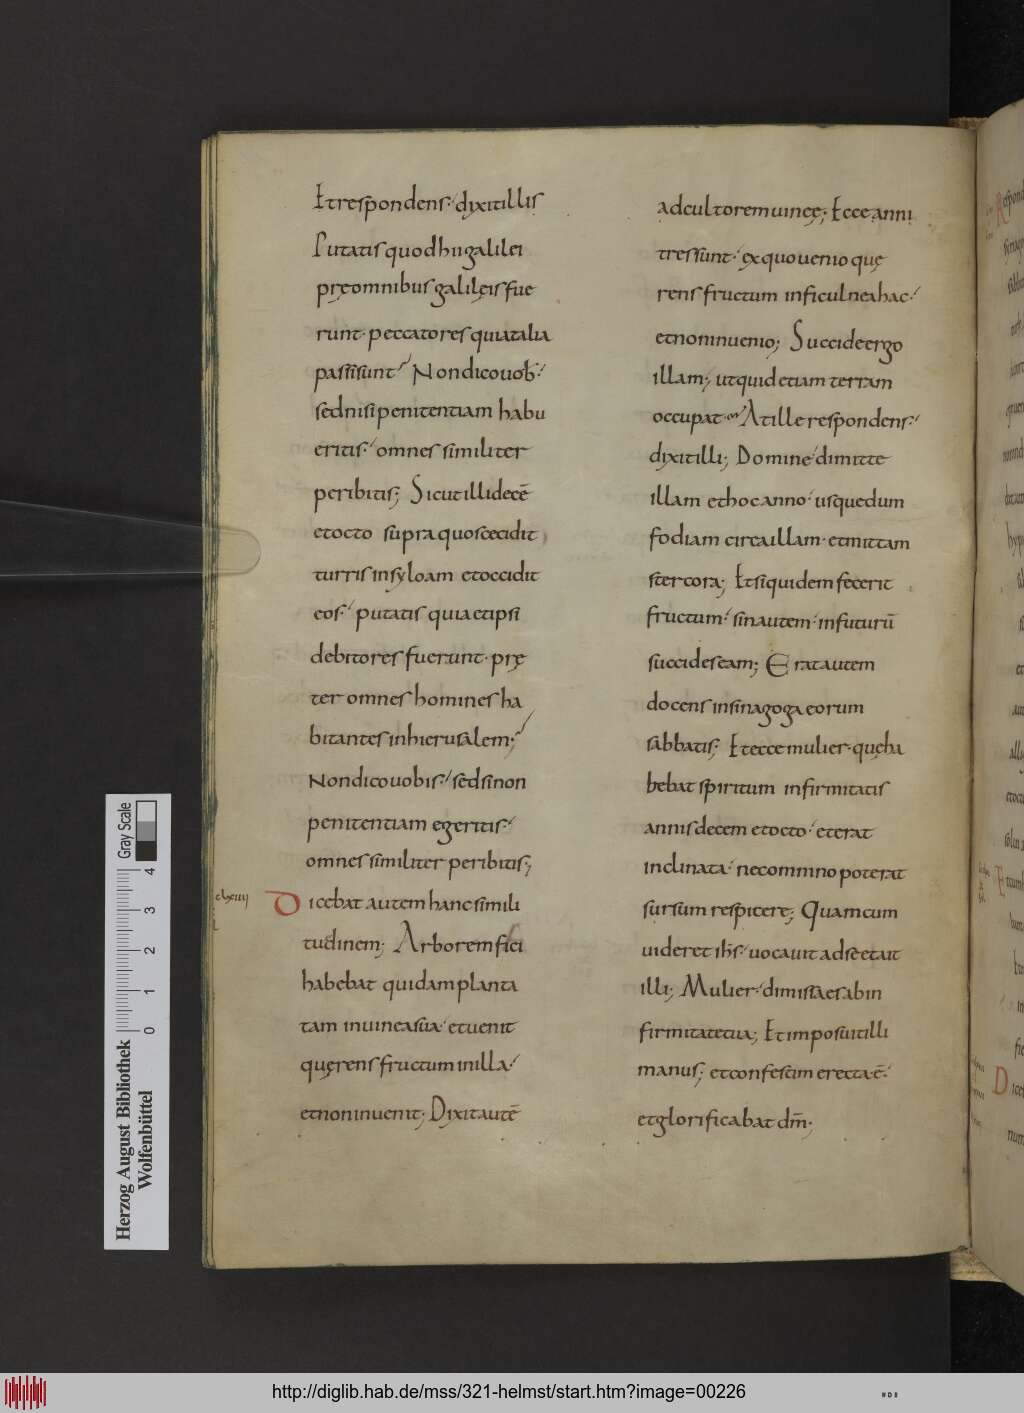 Et respondens dixit illis
Putatis quod hii galilei
pręomnibus galilęis fue
runt peccatores quia talia
passi sunt Non dico uob
sed nisi penitentiam habu
eritis omnes similiter
peribitis; Sicut illi decē
et octo supra quos cecidit
turris in syloam et occidit
eos putatis quia et ipsi
debitores fuerunt prę
ter omnes homines ha
bitantes in hierusalem;
Non dico uobis sed si non
penitentiam egeritis
omnes similiter peribitis;
clxiiii Dicebat autem hanc simili
tudinem; Arborem fici
habebat quidam planta
tam in uinea sua et uenit
quęrens fructum in illa
et non inuenit; Dixit autē
ad cultorem uineę; Ecce anni
tres sunt ex quo uenio quę
rens fructum in ficulnea hac
et non inuenio; Succide ergo
illam; ut quid etiam terram
occupat At ille respondens
dixit illi; Domine dimitte
illam et hoc anno usque dum
fodiam circa illam et mittam
stercora; Et siquidem fecerit
fructum sin autem in futurū
succides eam; Erat autem
docens in sinagoga eorum
sabbatis; Et ecce mulier quę ha
bebat spiritum infirmitatis
annis decem et octo et erat
inclinata nec omnino poterat
sursum respicere; Quam cum
uideret ihs uocauit ad se et ait
illi; Mulier dimissa es ab in
firmitate tua; Et imposuit illi
manus; et confestim erecta ē
et glorificabat dm̄
Herzog August Bibliothek
Wolfenbüttel
0 1 2 3 4
Gray Scale
http://diglib.hab.de/mss/321-helmst/start.htm?image=00226